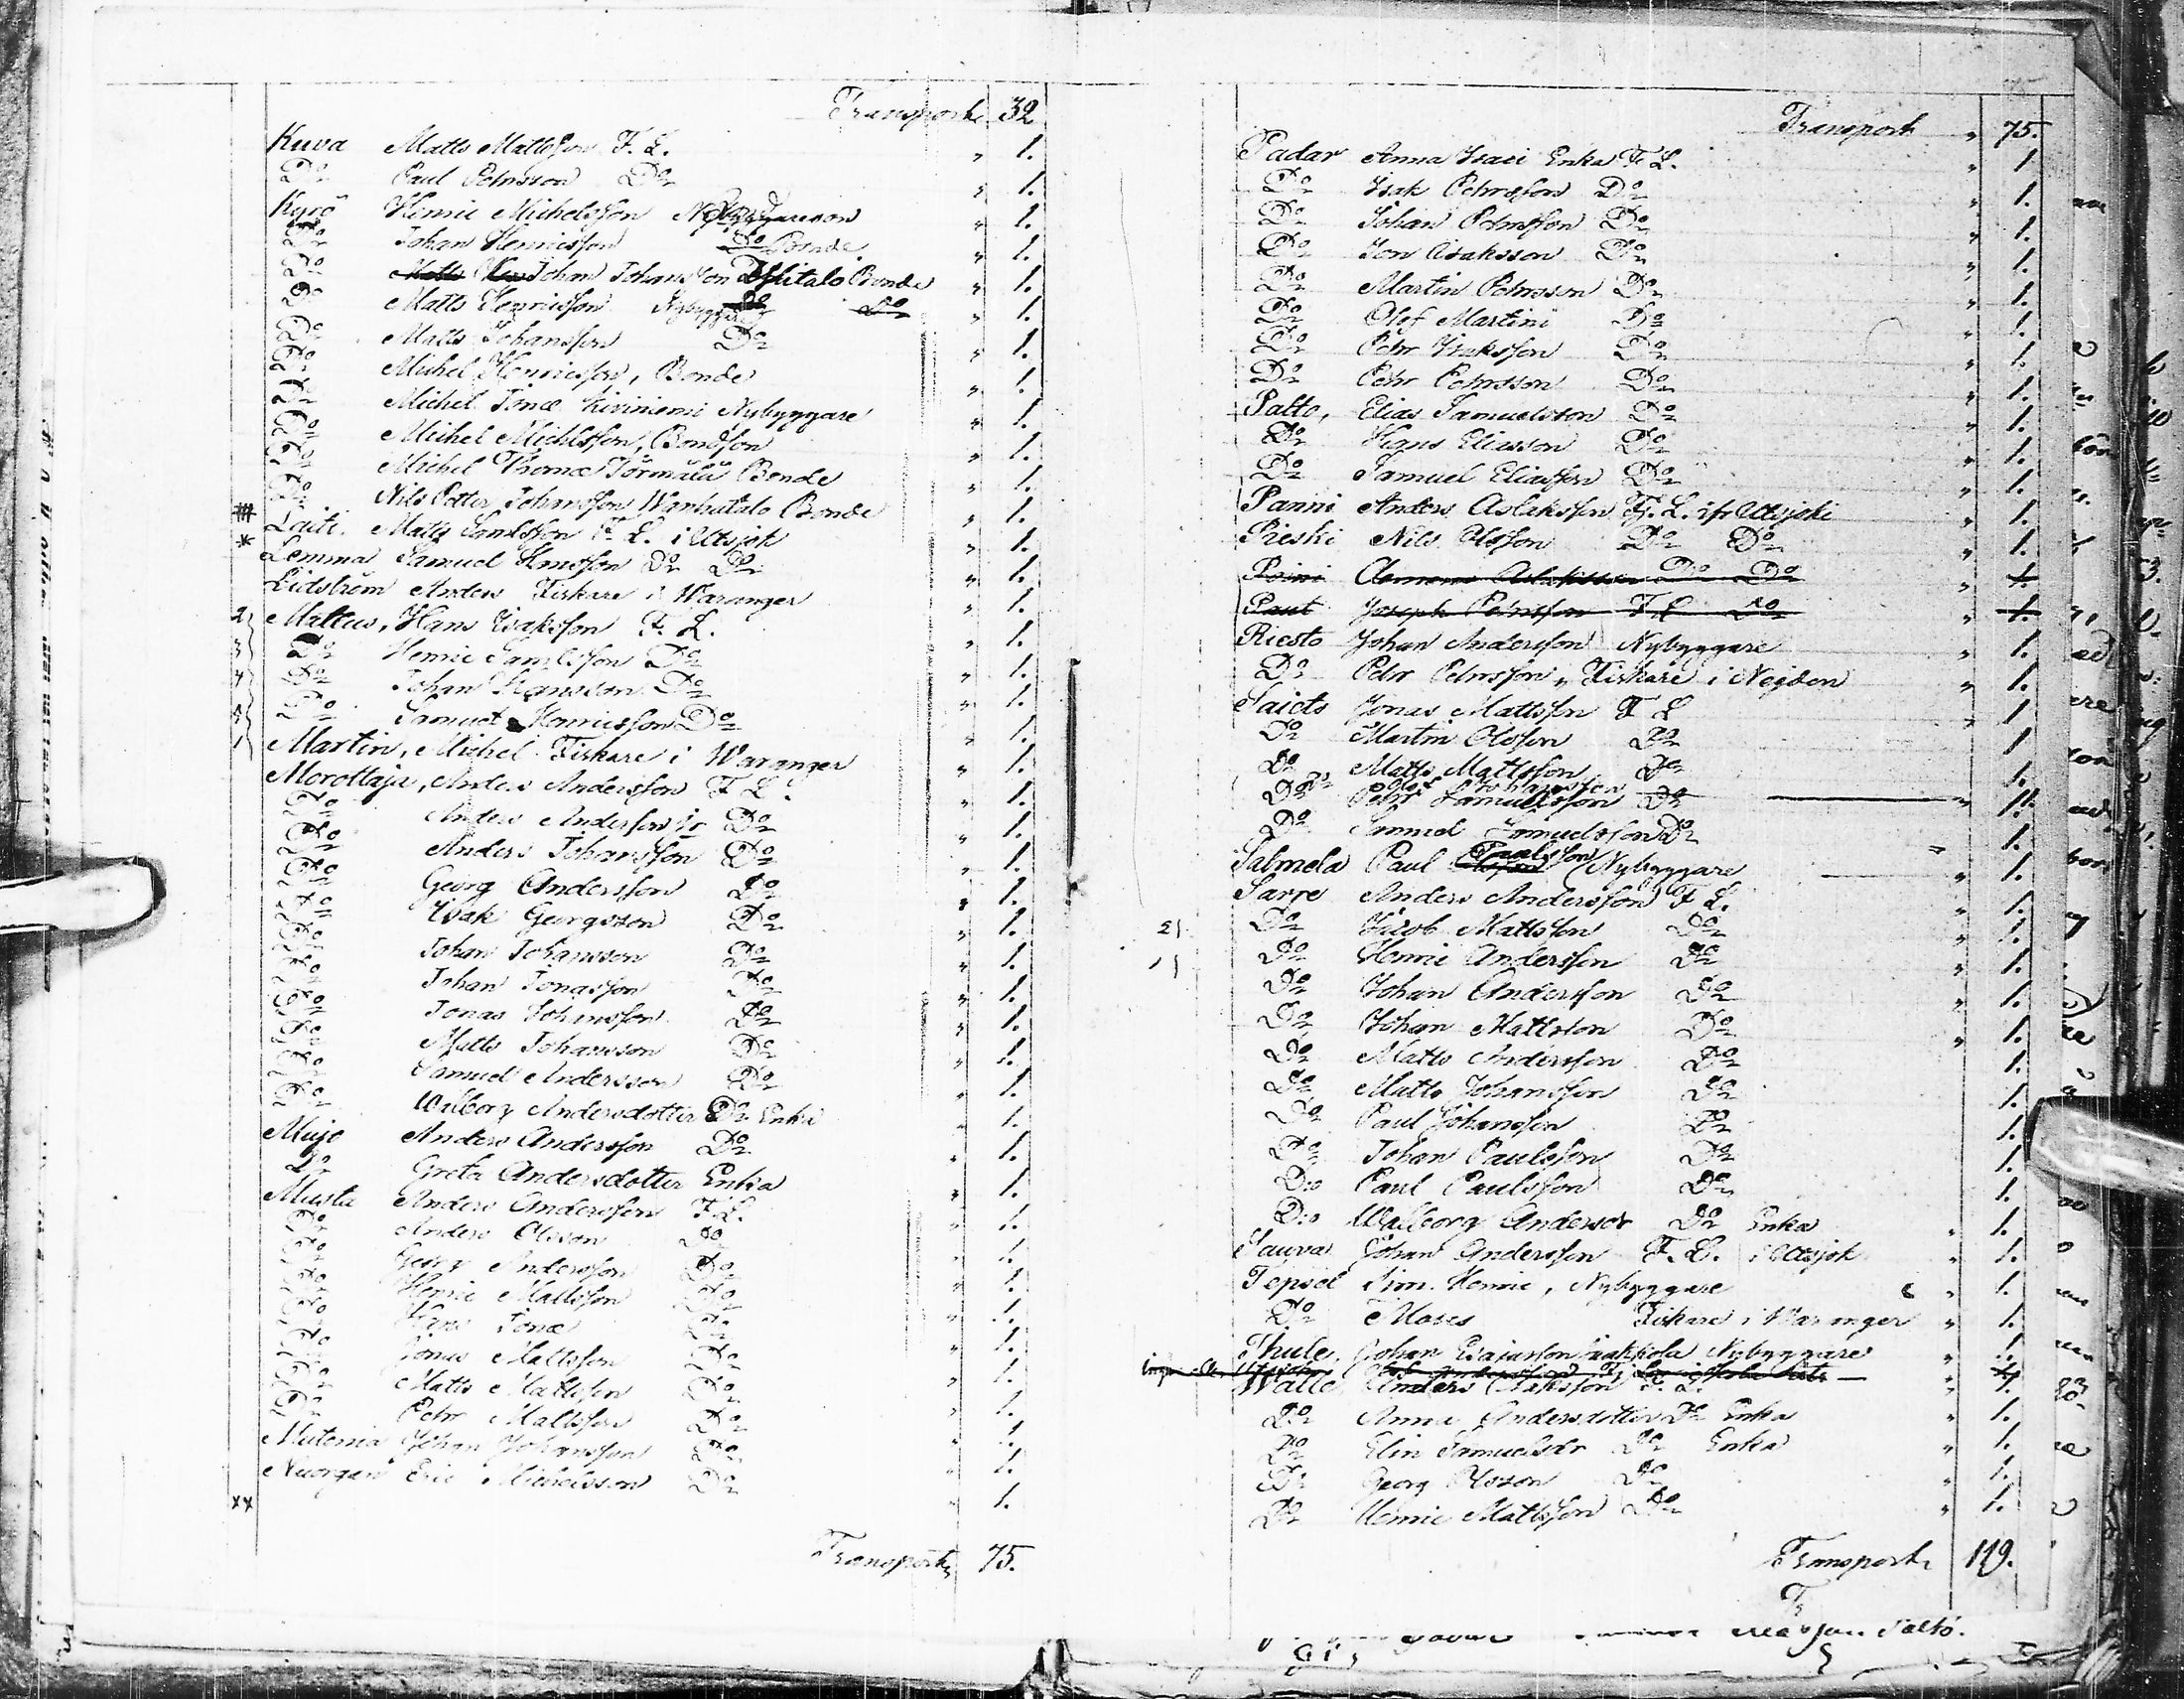 Transport 32
Kuva Matts Mattsson F. L. " 1.
Do Paul Pehrsson Do " 1.
Kyrö Henric Michelsson " 1.
Do Johan Henricsson Do Bonde " 1.
Do Matts Johan Johansson Bonde " 1.
Do Matts Henricsson Nybyggare Do Do " 1.
Do Matts Johansson Do " 1.
Do Michel Henricsson, Bonde " 1.
Do Michel Jonæ Kiviniemi Nybyggare " 1.
Do Michel Michelsson, Bondson " 1.
Do Michel Thomæ Törmälä Bonde " 1.
Do Nils Petter Johansson Wanhatalo Bonde " 1.
Laiti. Matts Samlsson F. L. i Utsjok " 1.
Lemma Samuel Hansson Do Do " 1.
Lidström Anders Fiskare i Waranger " 1.
2 Mattus, Hans Isaksson F. L. " 1.
3 Do Henric Samlsson Do " 1.
4 Do Johan Hansson Do " 1.
5 Do Samuel Henricsson Do " 1.
1 Martin, Michel Fiskare i Waranger " 1.
Morottaja, Anders Andersson F. L. " 1.
Do Anders Andersson Jr Do " 1.
Do Anders Johansson Do " 1.
Do Georg Andersson Do " 1.
Do Isak Georgsson Do " 1.
Do Johan Johansson Do " 1.
Do Johan Jonasson Do " 1.
Do Jonas Johansson Do " 1.
Do Matts Johansson Do " 1.
Do Samuel Andersson Do " 1.
Do Walborg Andersdotter Do Enka " 1.
Mujo Anders Andersson Do " 1.
Do Greta Andersdotter Enka " 1.
Musta Anders Andersson F. L. " 1.
Do Anders Olsson Do " 1.
Do Georg Andersson Do " 1.
Do Henric Mattsson Do " 1.
Do Hans Jonæ Do " 1.
Do Jonas Mattsson Do " 1.
Do Matts Mattsson Do " 1.
Do Pehr Mattsson Do " 1.
Mutenia Johan Johansson Do " 1.
Nuorgam Eric Michelsson Do " 1.
xx
Transport 75.
Transport " 75.
Padar Anna Isaci Enka F. L. " 1
Do Isak Pehrsson Do " 1.
Do Johan Pehrsson Do " 1.
Do Jon Isaksson Do " 1.
Do Martin Pehrsson Do " 1.
Do Olof Martini Do " 1.
Do Pehr Isaksson Do " 1.
Do Pehr Pehrsson Do " 1.
Palto, Elias Samuelsson Do " 1.
Do Hans Eliasson Do " 1.
Do Samuel Eliasson Do " 1.
Panni Anders Aslaksson Fj. L. ifr Utsjoki " 1.
Pieski Nils Olsson Do Do " 1.
Poini Clemens Aslaksson Do Do " 1.
Paut Joseph Pehrsson F L Do " 1.
Riesto Johan Andersson Nybyggare " 1.
Do Pehr Pehrsson, Fiskare i Neiden " 1.
Saiets Jonas Mattsson F L " 1
Do Martin Olsson Do " 1
Do Matts Mattsson Do " 1.
Do Olof Johansson
Do Pehr Samuelsson Do " 1.
Do Samuel Samuelsson Do " 1.
Salmela Paul Paulsson Nybyggare " 1.
Sarre Anders Andersson F L. " 1.
2 Do Jacob Mattsson Do " 1.
1 Do Henric Andersson Do " 1.
Do Johan Andersson Do " 1.
Do Johan Mattsson Do " 1.
Do Matts Andersson Do 1.
Do Matts Johansson Do 1.
Do Paul Johansson Do 1.
Do Johan Paulsson Do 1.
Do Paul Paulsson Do 1.
Do Walborg Andersdr Do Enka " 1.
Sauva Johan Andersson F. L. i Utsjok " 1.
Tepsel Sim. Henric, Nybyggare " 1.
Do Moses Fiskare i Waranger " 1.
Thule. Johan Esaiasson Nybyggare " 1.
Walle Anders Isaksson F. L. " 1.
Do Anna Andersdotter Do Enka " 1.
Do Elin Samuelsdr Do Enka " 1.
Do Georg Olsson Do " 1.
Do Henric Mattsson Do " 1.
Transport 119.